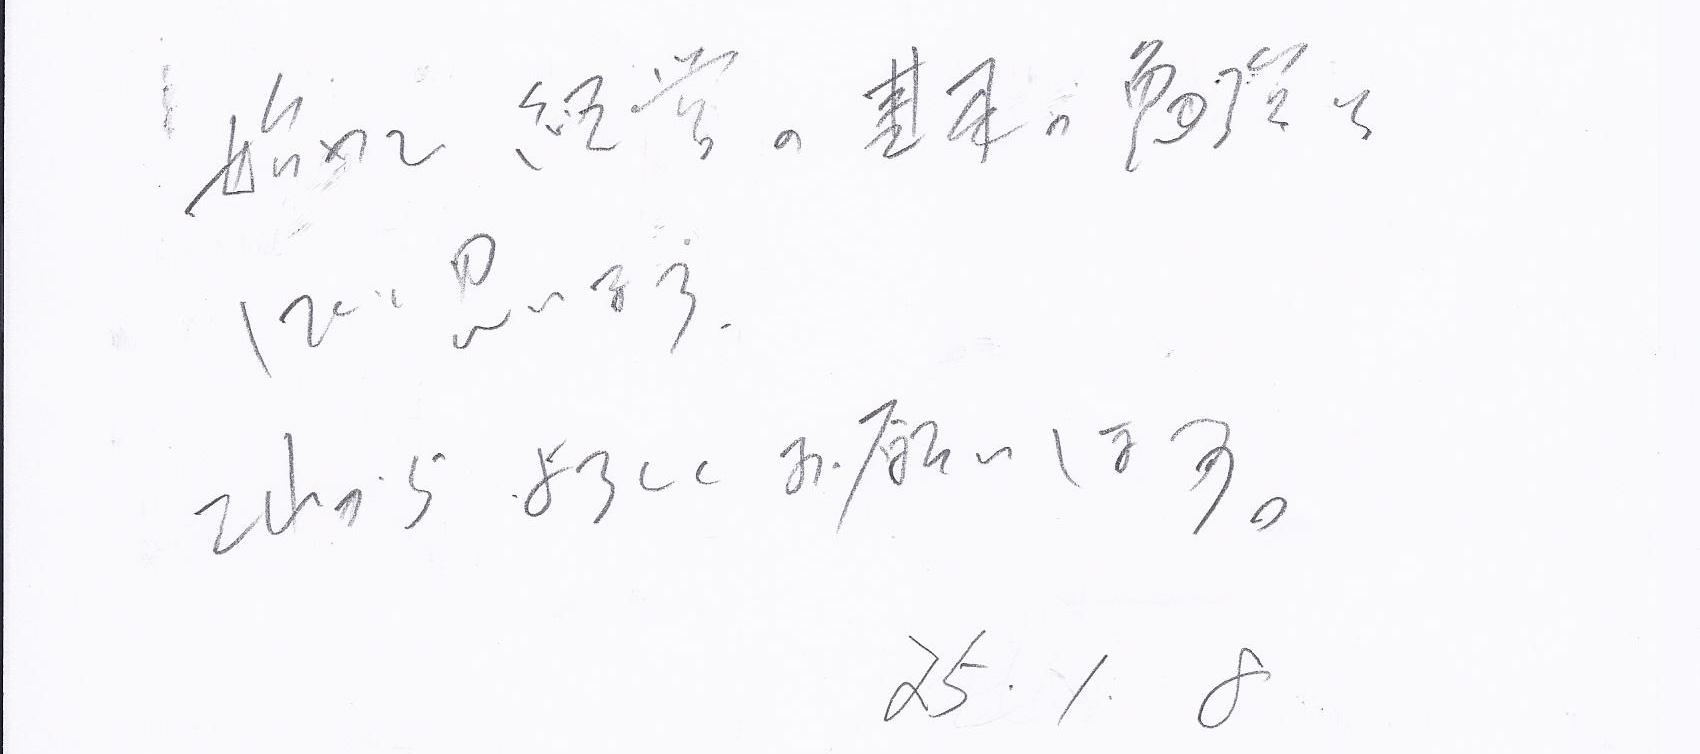 始めて 経営の基本の勉強を
していと思います.
これから よろしく お願いします。
25.1.8